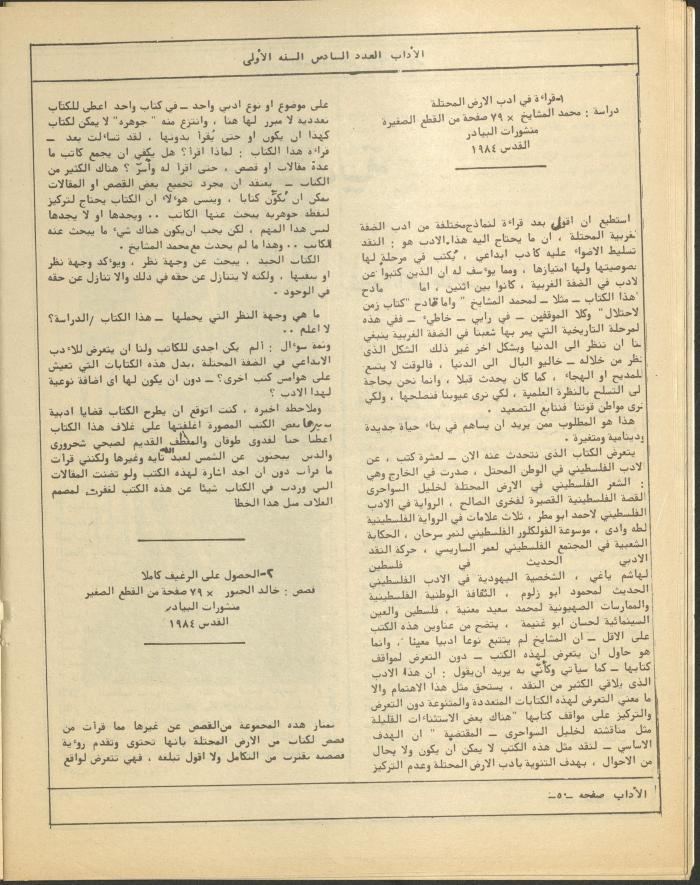 الآداب العدد السادس السنه الأولى
١-قراءة في ادب الارض المحتلة
دراسة : محمد المشايخ × ٧٩ صفحة من القطع الصغيرة
منشورات البيادر
القدس ١٩٨٤
استطيع ان اقول بعد قراءة لنماذج مختلفة من ادب الضفة
لغربية المحتلة ، ان ما يحتاج اليه هذا الادب هو : النقد
تسليط الاضواء عليه كأدب ابداعي ، يُكتب في مرحلة لها
بصوصيتها ولها امتيازها ، ومما يؤسف له ان الذين كتبوا عن
لادب في الضفة الغربية ، كانوا بين اثنين ، اما مادح
"هذا الكتاب ــ مثلا ــ لمحمد المشايخ " واما قادح "كتاب زمن
لاحتلال" وكلا الموقفين ــ في رأيي ــ خاطىء ــ ففي هذه
لمرحلة التاريخية التي يمر بها شعبنا في الضفة الغربية ينبغي
نا ان ننظر الى الدنيا وبشكل اخر غير ذلك الشكل الذى
نظر من خلاله ــ خاليو البال الى الدنيا ، فالوقت لا يتسع
للمديح او الهجاء ، كما كان يحدث قبلا ، وانما نحن بحاجة
لى التسلح بالنظرة العلمية ، لكي نرى عيوبنا فنصلحها ، ولكي
نرى مواطن قوتنا فنتابع التصعيد .
هذا هو المطلوب ممن يريد ان يساهم في بناء حياة جديدة
ودينامية ومتغيرة .
يتعرض الكتاب الذى نتحدث عنه الان ــ لعشرة كتب ، عن
لادب الفلسطيني في الوطن المحتل ، صدرت في الخارج وهي
: الشعر الفلسطيني في الارض المحتلة لخليل السواحرى
لقصة الفلسطينية القصيرة لفخرى الصالح ، الرواية في الادب
الفلسطيني لاحمد ابو مطر ، ثلاث علامات في الرواية الفلسطينية
لطه وادى ، موسوعة الفولكلور الفلسطيني لنمر سرحان ، الحكاية
الشعبية في المجتمع الفلسطيني لعمر الساريسي ، حركة النقد
الادبي الحديث في فلسطين
لهاشم ياغي ، الشخصية اليهودية في الادب الفلسطيني
الحديث لمحمود ابو زلوم ، الثقافة الوطنية الفلسطينية
والممارسات الصهيونية لمحمد سعيد مضية ، فلسطين والعين
السينمائية لحسان ابو غنيمة . يتضح من عناوين هذه الكتب
على الاقل ــ ان المشايخ لم يتتبع نوعا ادبيا معينًا ، وانما
هو حاول ان يتعرض لهذه الكتب ــ دون التعرض لمواقف
كتابها ــ كما سيأتي وكأنّي به يريد ان يقول : ان هذا الادب
الذى يلاقي الكثير من النقد ، يستحق مثل هذا الاهتمام والا
ما معني التعرض لهذه الكتابات المتعددة والمتنوعة دون التعرض
والتركيز على مواقف كتابها "هناك بعض الاستثناءات القليلة
مثل مناقشته لخليل السواحرى ــ المقتضبة " ان الهدف
الاساسي ــ لنقد مثل هذه الكتب لا يمكن ان يكون ولا بحال
من الاحوال ، بهدف التنوية بادب الارض المحتلة وعدم التركيز
على موضوع او نوع ادبي واحد ــ في كتاب واحد اعطى للكتاب
تعددية لا مبرر لها هنا ، وانتزع منه "جوهره" لا يمكن لكتاب
كهذا ان يكون او حتى يُقرأ بدونها ، لقد تساءلت بعد ــ
قراءة هذا الكتاب : لماذا اقرأ؟ هل يكفي ان يجمع كاتب ما
عدة مقالات او قصص ، حتى اقرأ له وأُسرّ ؟ هناك الكثير من
الكتاب ــ يعتقد ان مجرد تجميع بعض القصص او المقالات
يمكن ان يُكوّن كتابا ، وينسى هؤلاء ان الكتاب يحتاج لتركيز
لنقطة جوهرية يبحث عنها الكاتب .. ويجدها او لا يجدها
ليس هذا المهم ، لكن يجب ان يكون هناك شيء ما يبحث عنه
الكاتب .. وهذا ما لم يحدث مع محمد المشايخ .
الكتاب الجيد ، يبحث عن وجهة نظر ، ويؤكد وجهة نظر
او ينفيها ، ولكنه لا يتنازل عن حقه في ذلك والا تنازل عن حقه
في الوجود .
ما هي وجهة النظر التي يحملها ــ هذا الكتاب /الدراسة؟
لا اعلم ..
وثمة سؤال : ألم يكن اجدى للكاتب ولنا ان يتعرض للأدب
الابداعي في الضفة المحتلة ،بدل هذه الكتابات التي تعيش
على هوامش كتب اخرى؟ ــ دون ان يكون لها اى اضافة نوعية
لهذا الادب ؟
وملاحظة اخيرة ، كنت اتوقع ان يطرح الكتاب قضايا ادبية
بعض الكتب المصورة اغلفتها على غلاف هذا الكتاب
اعطنا حبا لفدوى طوقان والمعطف القديم لصبحي شحرورى
والذين يبحثون عن الشمس لعبد الله تايه وغيرها ولكنني قرأت
ما قرأت دون ان اجد اشارة لهذه الكتب ولو تضنت المقالات
التي وردت في الكتاب شيئا عن هذه الكتب لغفرت لمصمم
الغلاف مثل هذا الخطأ
٢-الحصول على الرغيف كاملا
قصص : خالد الجبور × ٧٩ صفحة من القطع الصغير
منشورات البيادر
القدس ١٩٨٤
تمتاز هذه المجموعة من القصص عن غيرها مما قرأت من
قصص لكتاب من الارض المحتلة بانها تحتوى وتقدم رؤية
قصصية تقترب من التكامل ولا اقول تبلغه ، فهي تتعرض لواقع
الآداب صفحه ــ٥٠ــ